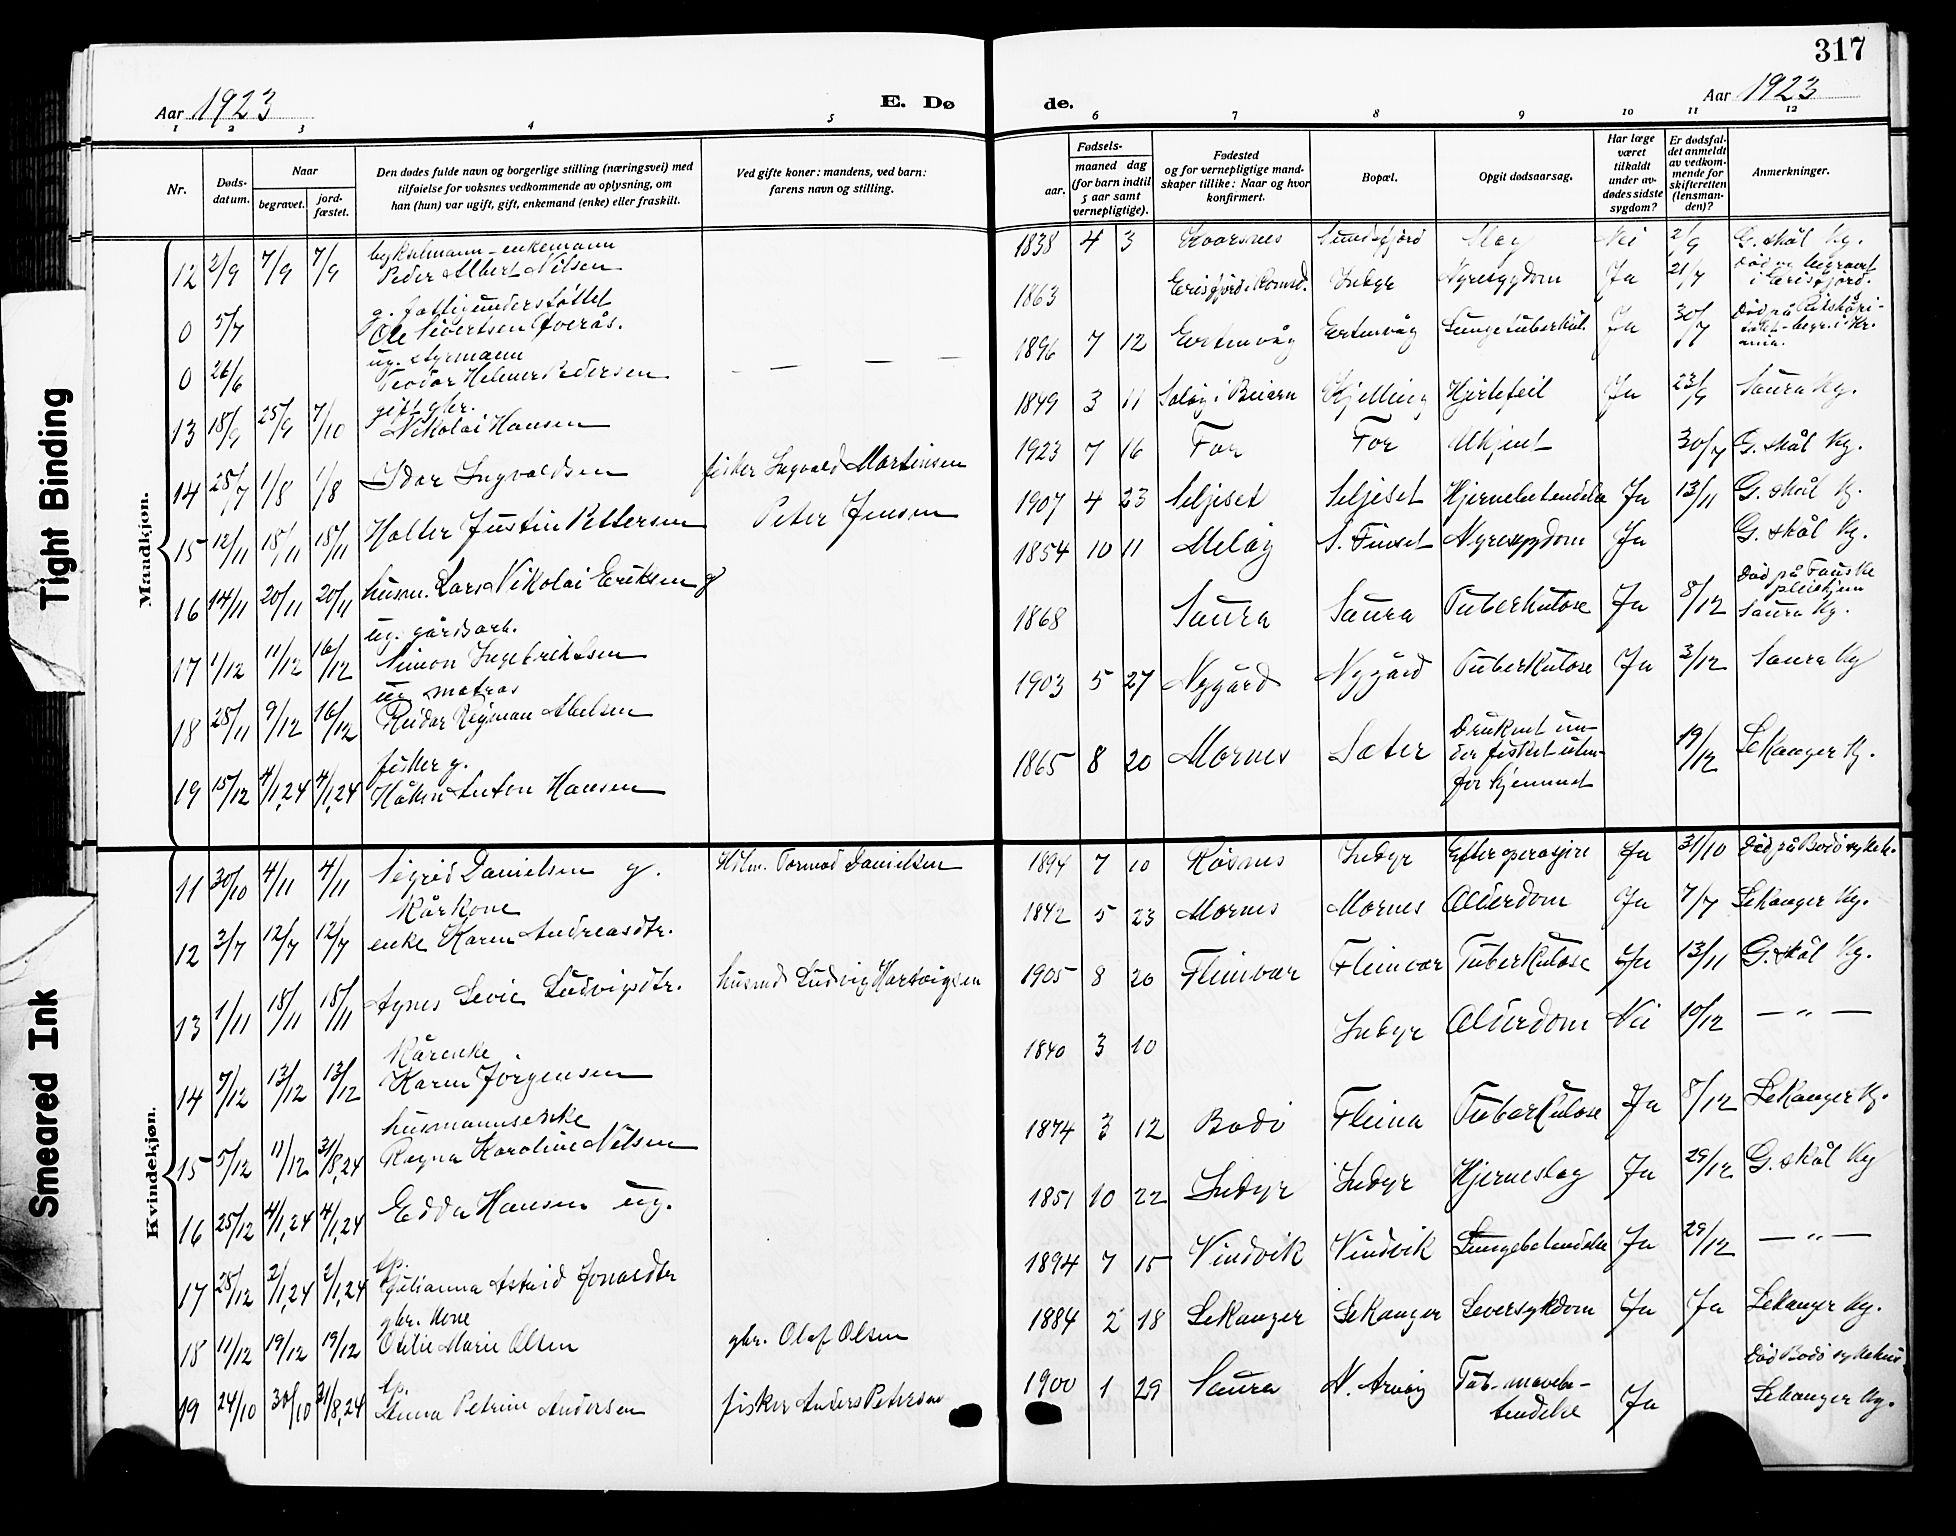 317
Aar 1923
E. Dø
de.
Aar 1923
1 2 3 4 5 6 7 8 9 10 11 12
Nr.
Døds-
datum.
Naar
begravet.
jord-
fæstet.
Den dødes fulde navn og borgerlige stilling (næringsvei) med
tilføielse for voksnes vedkommende av oplysning, om
han (hun) var ugift, gift, enkemand (enke) eller fraskilt.
Ved gifte koner: mandens, ved barn:
farens navn og stilling.
Fødsels-
aar.
maaned dag
(for barn indtil
5 aar samt
vernepligtige).
Fødested
og for vernepligtige mand-
skaper tillike: Naar og hvor
konfirmert.
Bopæl.
Opgit dødsaarsag.
Har læge
været
tilkaldt
under av-
dødes sidste
sygdom?
Er dødsfal-
det anmeldt
av vedkom-
mende for
skifteretten
(lensman-
den)?
Anmerkninger.
Mandkjøn.
enkemann
12 2/9 7/9 7/9 Peder Albert Nilsen 1838 4 3 Nei 2/9 G. skål kg.
g. fattigunderstøttet
0 5/7 Ole Sivertsen Øverås. 1863 Inbyr Nyresygdom Ja 21/7 Død og begravet
i Eresfjord.
ug. styrmann
0 26/6 Teodor Helmer Pedersen 1896 7 12 Evtenvåg Lungetuberkul. Ja 30/7 Død på Rikshospi-
gift gbr.
13 18/9 25/9 7/10 Nikolai Hansen 1849 3 11 i Beiarn Kjelling Hjertefeil Ja 23/9 Saura Kg.
14 25/7 1/8 1/8 Idar Ingvaldsen fisker Ingvald Martinsen 1923 7 16 For For Ukjent 30/7 G. skål Kg.
15 12/11 18/11 18/11 Halter Justin Pettersen Peter Jensen 1907 4 23 Seljeset Seljeset Hjernebetendelse Ja 13/11 G. skål K.
16 14/11 20/11 20/11 husm. Lars Nikolai Eriksen g 1854 10 11 Meløy S. Finset Nyresygdom Ja G. skål Kg.
ug. gårdsarb.
17 1/12 11/12 16/12 Simon Ingebriktsen 1868 Saura Saura Tuberkulose Ja 8/12 Død på Fauske
pleiehjem
Saura Kg.
ug matros
18 25/11 9/12 16/12 Reidar Abelsen 1903 5 27 Nygård Nygård Tuberkulose Ja 3/12 Saura Kg
fisker g.
19 15/12 4/1,24 4/1,24 Håkon Anton Hansen 1865 8 20 Mornes Sæter Druknet un-
der fisket uten-
for hjemmet 19/12 Lekanger K.
Kvindekjøn.
11 30/10 4/11 4/11 Sigrid Danielsen g. Tormod Danielsen 1894 7 10 Røsnes Inbyr Efter operasjon Ja 31/10 Død på Bodø sykeh.
Kårkone
12 3/7 12/7 12/7 enke Karen Andreasdtr. 1842 5 23 Mornes Mornes Alderdom Ja 7/7 Lekanger Kg.
13 1/11 18/11 18/11 Agnes Levie Ludvigsdtr. husmd Ludvig Hartvigsen 1905 8 20 Fleinvær Fleinvær Tuberkulose Ja 13/11 G. skål Kg.
Kårenke
14 7/12 13/12 13/12 Karen Jørgensen 1840 3 10 Inbyr Alderdom Nei 10/12 — " —
husmannsenke
15 5/12 11/12 31/8,24 Ragna Karoline Nilsen 1874 3 12 Bodø Fleina Tuberkulose Ja 8/12 Lekanger K.
16 25/12 4/1,24 4/1,24 Edda Hansen ug. 1851 10 22 Inbyr Inbyr Hjerneslag Ja 29/12 G. skål Kg
tp.
17 28/12 2/1,24 2/1,24 Julianna Astrid Jonasdtr 1894 7 15 Vindvik Vindvik Lungebetendelse Ja 29/12 — " —
gbr. kone
18 11/12 19/12 19/12 Otilie Marie Olsen gbr. Olaf Olsen 1884 2 18 Lekanger Lekanger Leversykdom Ja Ja Lekanger Kg.
tp.
19 24/10 30/10 31/8,24 Anna Petrine Andersen fisker Anders Petersen 1900 1 29 Saura N. Arnøy Tub. mavebe-
tendelse Ja Død Bodø sykehus
Lekanger Kg.
Tight Binding
Smeared Ink